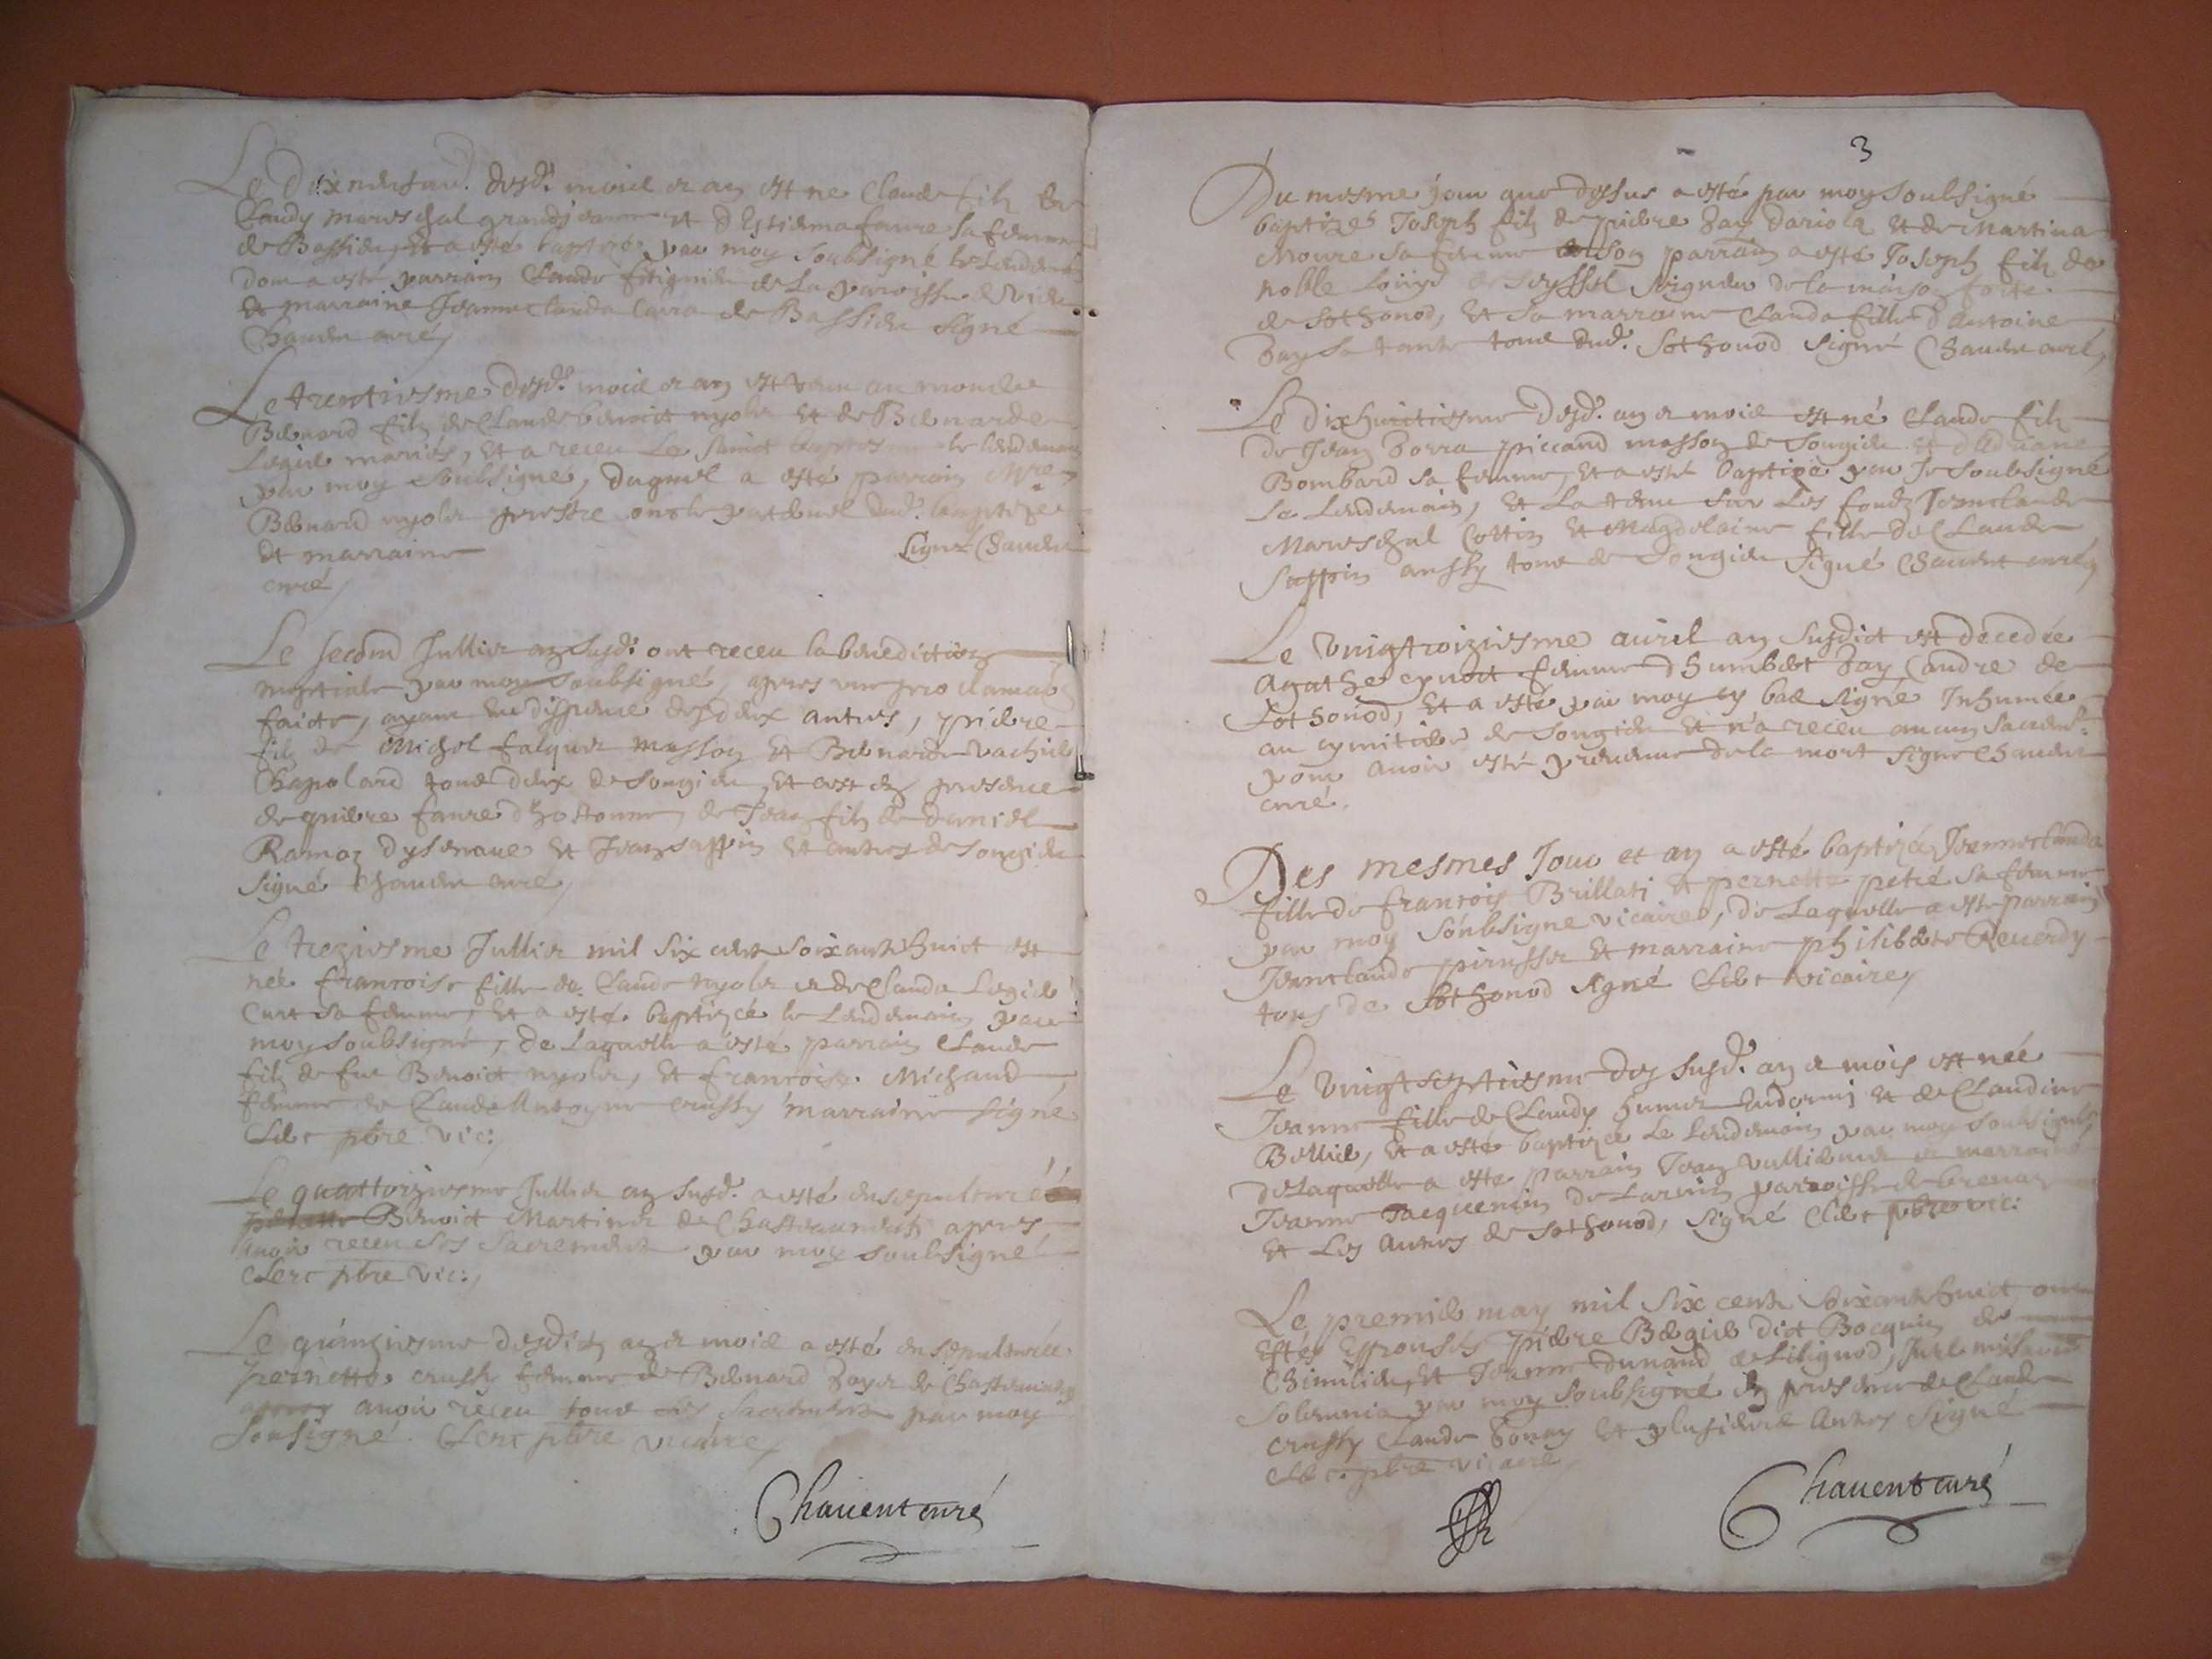 Le dixneufvie. desd. mois et an est né Claude filz de
Claudy mareschal grandjeanne et d'Estiena faure sa femme
de Bassieu, et a esté baptizé par moy soubsigné le lendemain
dont a esté parrain Claude de la paroisse de
et marraine Jeanne Clauda Carra de Bassieu signé
Chauent curé
Le trentiesme desd. mois et an est venu au monde
Bernard filz de Claude benoict nyolet et de Bernarde
mariés, et a receu le sainct baptesme le lendemain
par moy soubsigné, duquel a esté parrain Mre
Bernard nyolet prestre oncle paternel dud. baptizé
et marraine signé Chauent
curé
Le second Juillet an susd. ont receu la benediction
nuptiale par moy soubsigné, apres une proclamaõn
faicte, ayant eu dispence des deux autres, pierre
filz de Michel falquet masson et Bernarde vachie
Chapolard tous deux de Songieu, et c'est en presence
de pierre faure d'hostonne, de Jean filz de daniel
Ramaz et Jean sappin et autres de songieu
signé Chauent curé
Le treziesme Juillet mil six cent soixante huict est
née francoise fille de Claude nyolet et de Clauda
Curt sa femme, et a esté baptizée le lendemain par
moy soubsigné, de laquelle a esté parrain Claude
filz de feu Benoict nyolet, et francoise Michaud
femme de Claude Antoyne crussy marraine signé
Clerc pbre vic:
Le quattorziesme Juillet an susd. a esté ensepulturé
Benoict Martinet de Chasteauneuf apres
auoir receu ses sacrements par moy soubsigné
Clerc pbre vic:
Le quinziesme desditz an et mois a esté ensepulturée
pernette crussy femme de Bernard de Chasteauneuf
apres auoir receu tous ses sacrements par moy
sousigné. Clerc pbre vicaire
Chauent curé
3
Du mesme jour que dessus a esté par moy soubsigné
baptizé Joseph filz de pierre Jay dariola et de Martina
Moure sa femme son parrain a esté Joseph filz de
noble Louys de Seyssel seigneur de la maison forte
de Sothonod, et sa marraine Clauda fille d'Antoine
Jay sa tante tous dud. Sothonod signé Chauent curé
Le dixhuictiesme desd. an et mois est né Claude filz
de Jean Borra piccand masson de Songieu et d'Adriane
Bombard sa femme, et a esté baptizé par Je soubsigné
le lendemain, et l'a tenu sur les fondz Jeanclaude
Mareschal Cottin et Magdelaine fille de Claude
Sappin aussy tous de Songieu signé Chauent curé
Le vingtroiziesme auril an susdict est decedée
Agathe femme d'humbert Jay Candre de
Sothonod, et a esté par moy cy bas signé Inhumée
au cymitiere de Songieu et n'a receu aucun sacrem.t
pour auoir esté preuenue de la mort signé Chauent
curé.
Des mesmes Jour et an a esté baptizée Jeanneclauda
fille de francois Brillati et pernette petré sa femme
par moy soubsigné vicaire, de laquelle a esté parrain
Jeanclaude et marraine philiberte Reuerdy
tous de Sothonod signé Clerc vicaire
Le vingt septiesme des susd. an et mois est née
Jeanne fille de Claudy et de Claudine
Bellie, et a esté baptizée le lendemain par moy soubsigné
de laquelle a este parrain Jean vulliemet et marraine
Jeanne Jacquemin de paroisse de brenaz
et les autres de Sothonod, signé Clerc pbre vic:
Le premier may mil six cent soixante huict ont
Estés Espousés pierre dict Bocquin de
et Jeanne dunand de Lilignod, Intra missarum
solemnia par moy soubsigné en presence de Claude
crussy Claude et plusieurs autres signé
Clerc pbre vicaire
Chauent curé